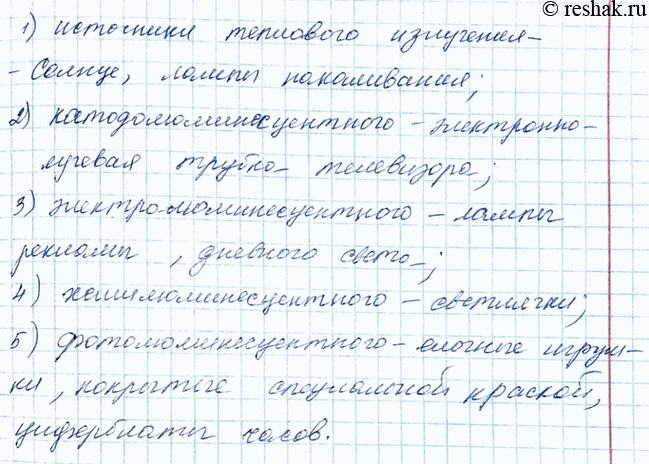 © reshak.ru
1) источники теплового излучения-
- Солнце, лампы накаливания;
2) катодолюминесцентного - электронно-
лучевая трубка телевизора;
3) электролюминесцентного - лампы
рекламы, дневного света;
4) хемилюминесцентного - светлячки;
5) фотолюминесцентного - елочные игруш-
ки, покрытые специальной краской,
циферблаты часов.